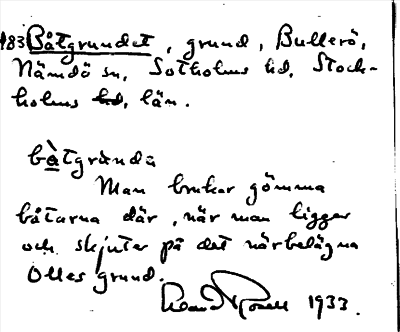 183 Båtgrundet, grund, Bullerö,
Nämdö sn, Sotholms hd, Stock-
holms hd, län.
båtgrùndu
Man brukar gömma
båtarna där, när man ligger
och skjuter på det närbelägna
Olles grund.
1933.